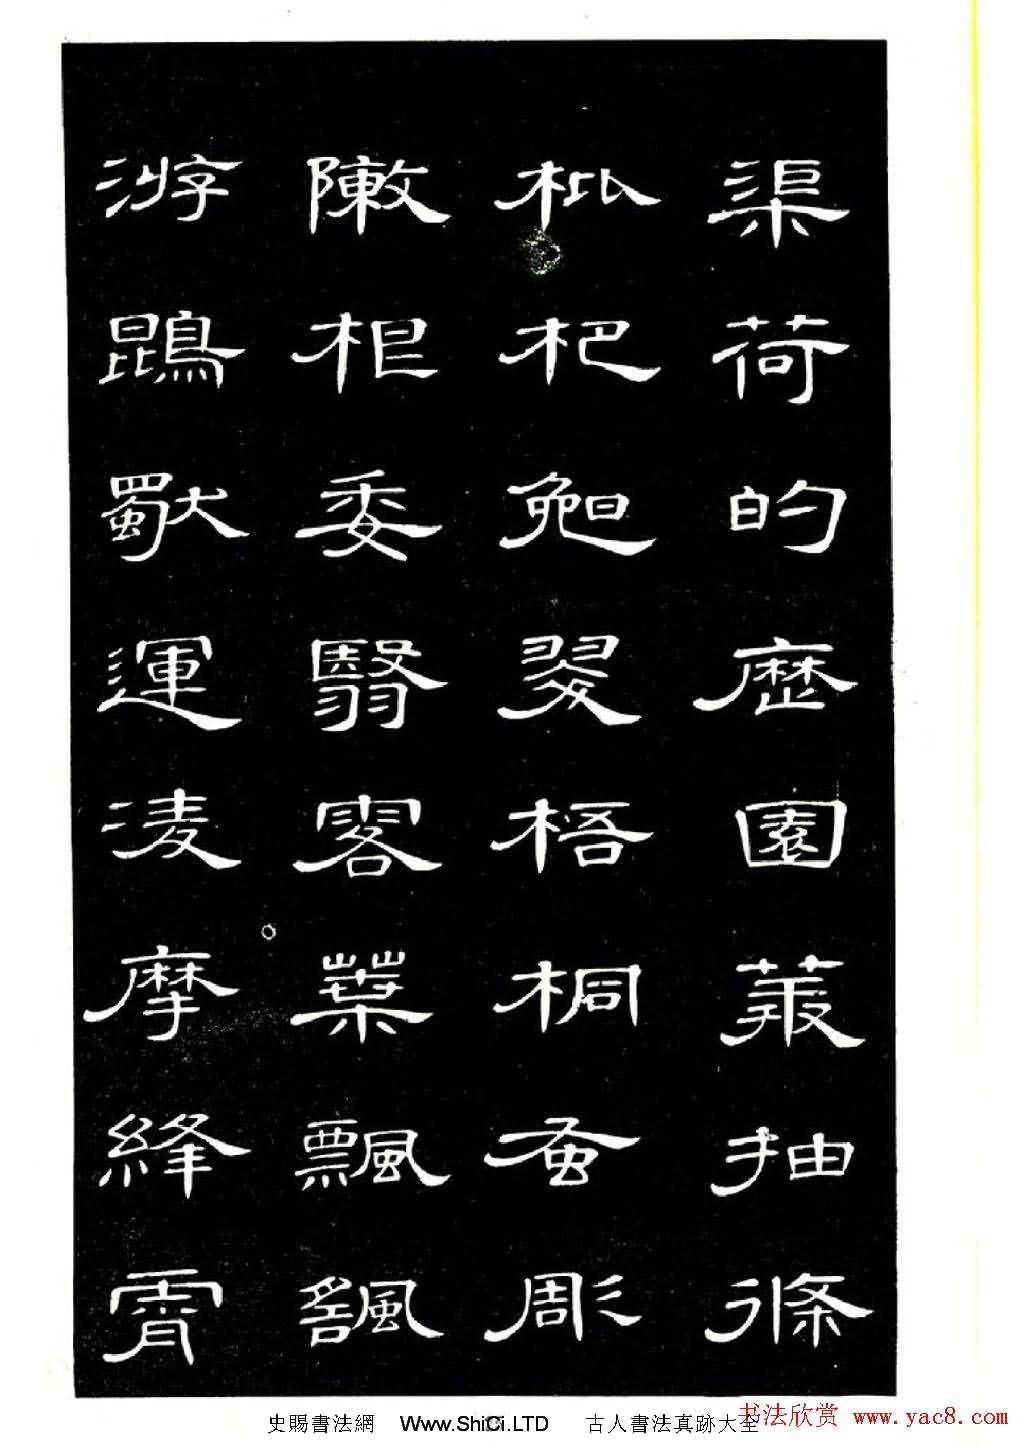 渠荷的歷園菆抽條
枇杷晚翠梧桐蚤彫
敶根委翳落葉飄颻
游鵾獨運凌摩絳霄
史賜書法網 Www.ShiCi.LTD 古人書法真跡大全
书法欣赏 www.yac8.com